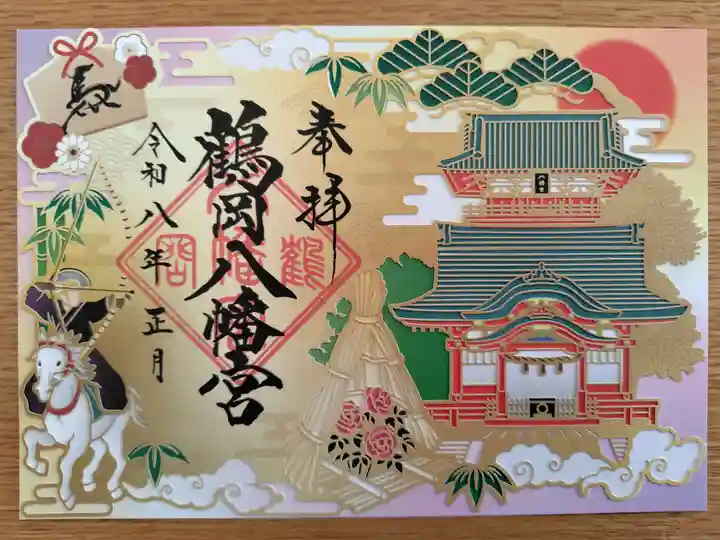 奉拝
鶴岡八幡宮
令和八年正月
八幡宮